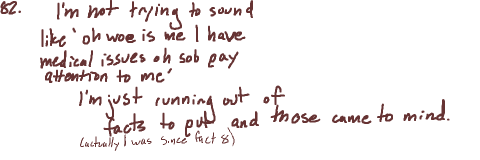 82. I'm not trying to sound
like 'oh woe is me I have
medical issues oh sob pay
attention to me'
I'm just running out of
facts to put and those came to mind.
(actually I was since fact 8)